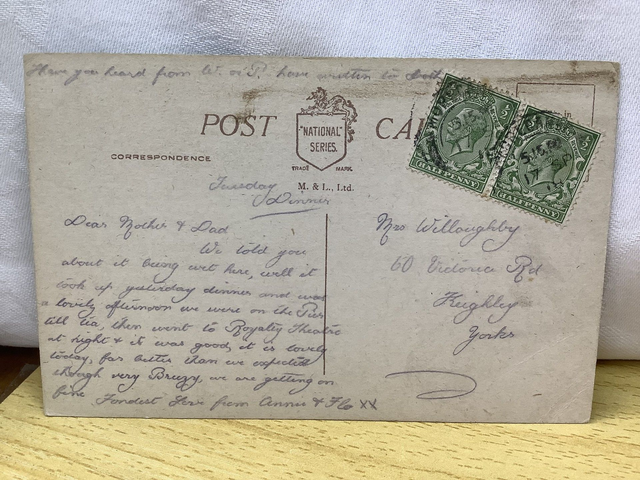 Have you heard from W. or P. have written to both
POST CA
"NATIONAL"
SERIES.
TRADE MARK.
M. & L., Ltd.
CORRESPONDENCE
HALFPENNY
HALFPENNY
5.15 PM
17
Tuesday
Dinner
Dear Mother & Dad
We told you
about it being wet here, well it
took up yesterday dinner and was
a lovely afternoon we were on the Pier
till tea, then went to Royalty Theatre
at night & it was good, it is lovely
today, far better than we expected
though very Breezy, we are getting on
fine Fondest Love from Annie & Flo XX
Mrs Willoughby
60 Victoria Rd
Keighley
Yorks